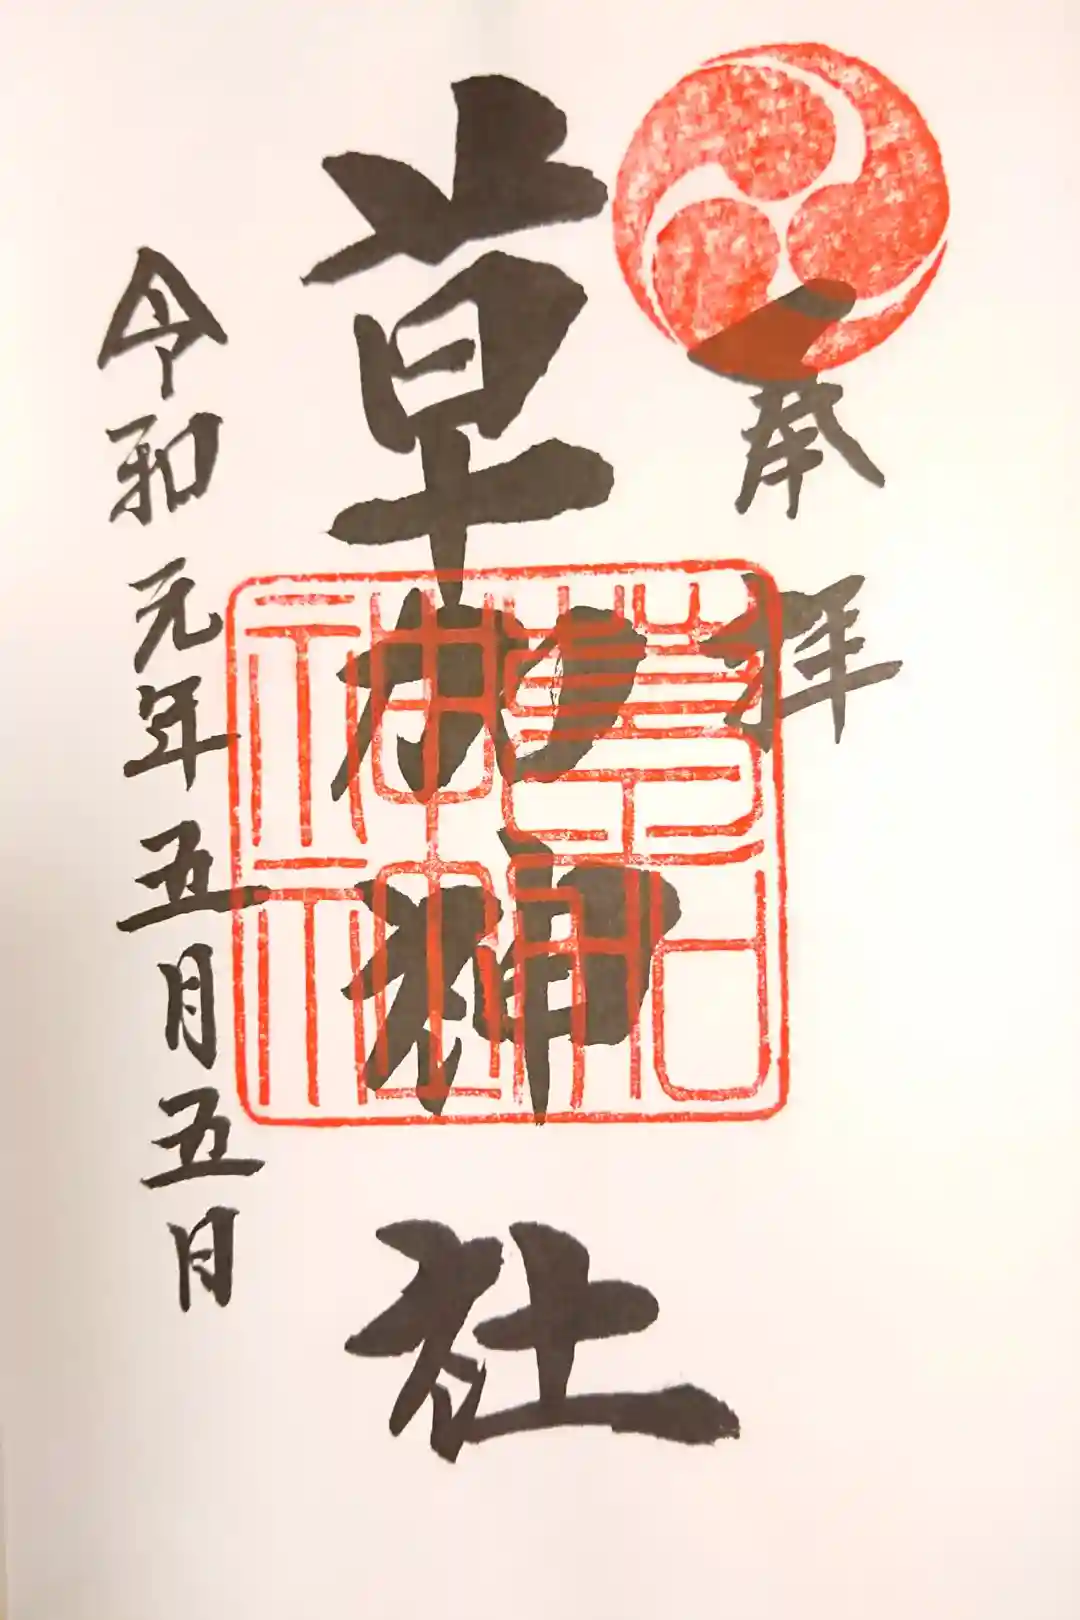 奉拝
草加神社
令和元年五月五日